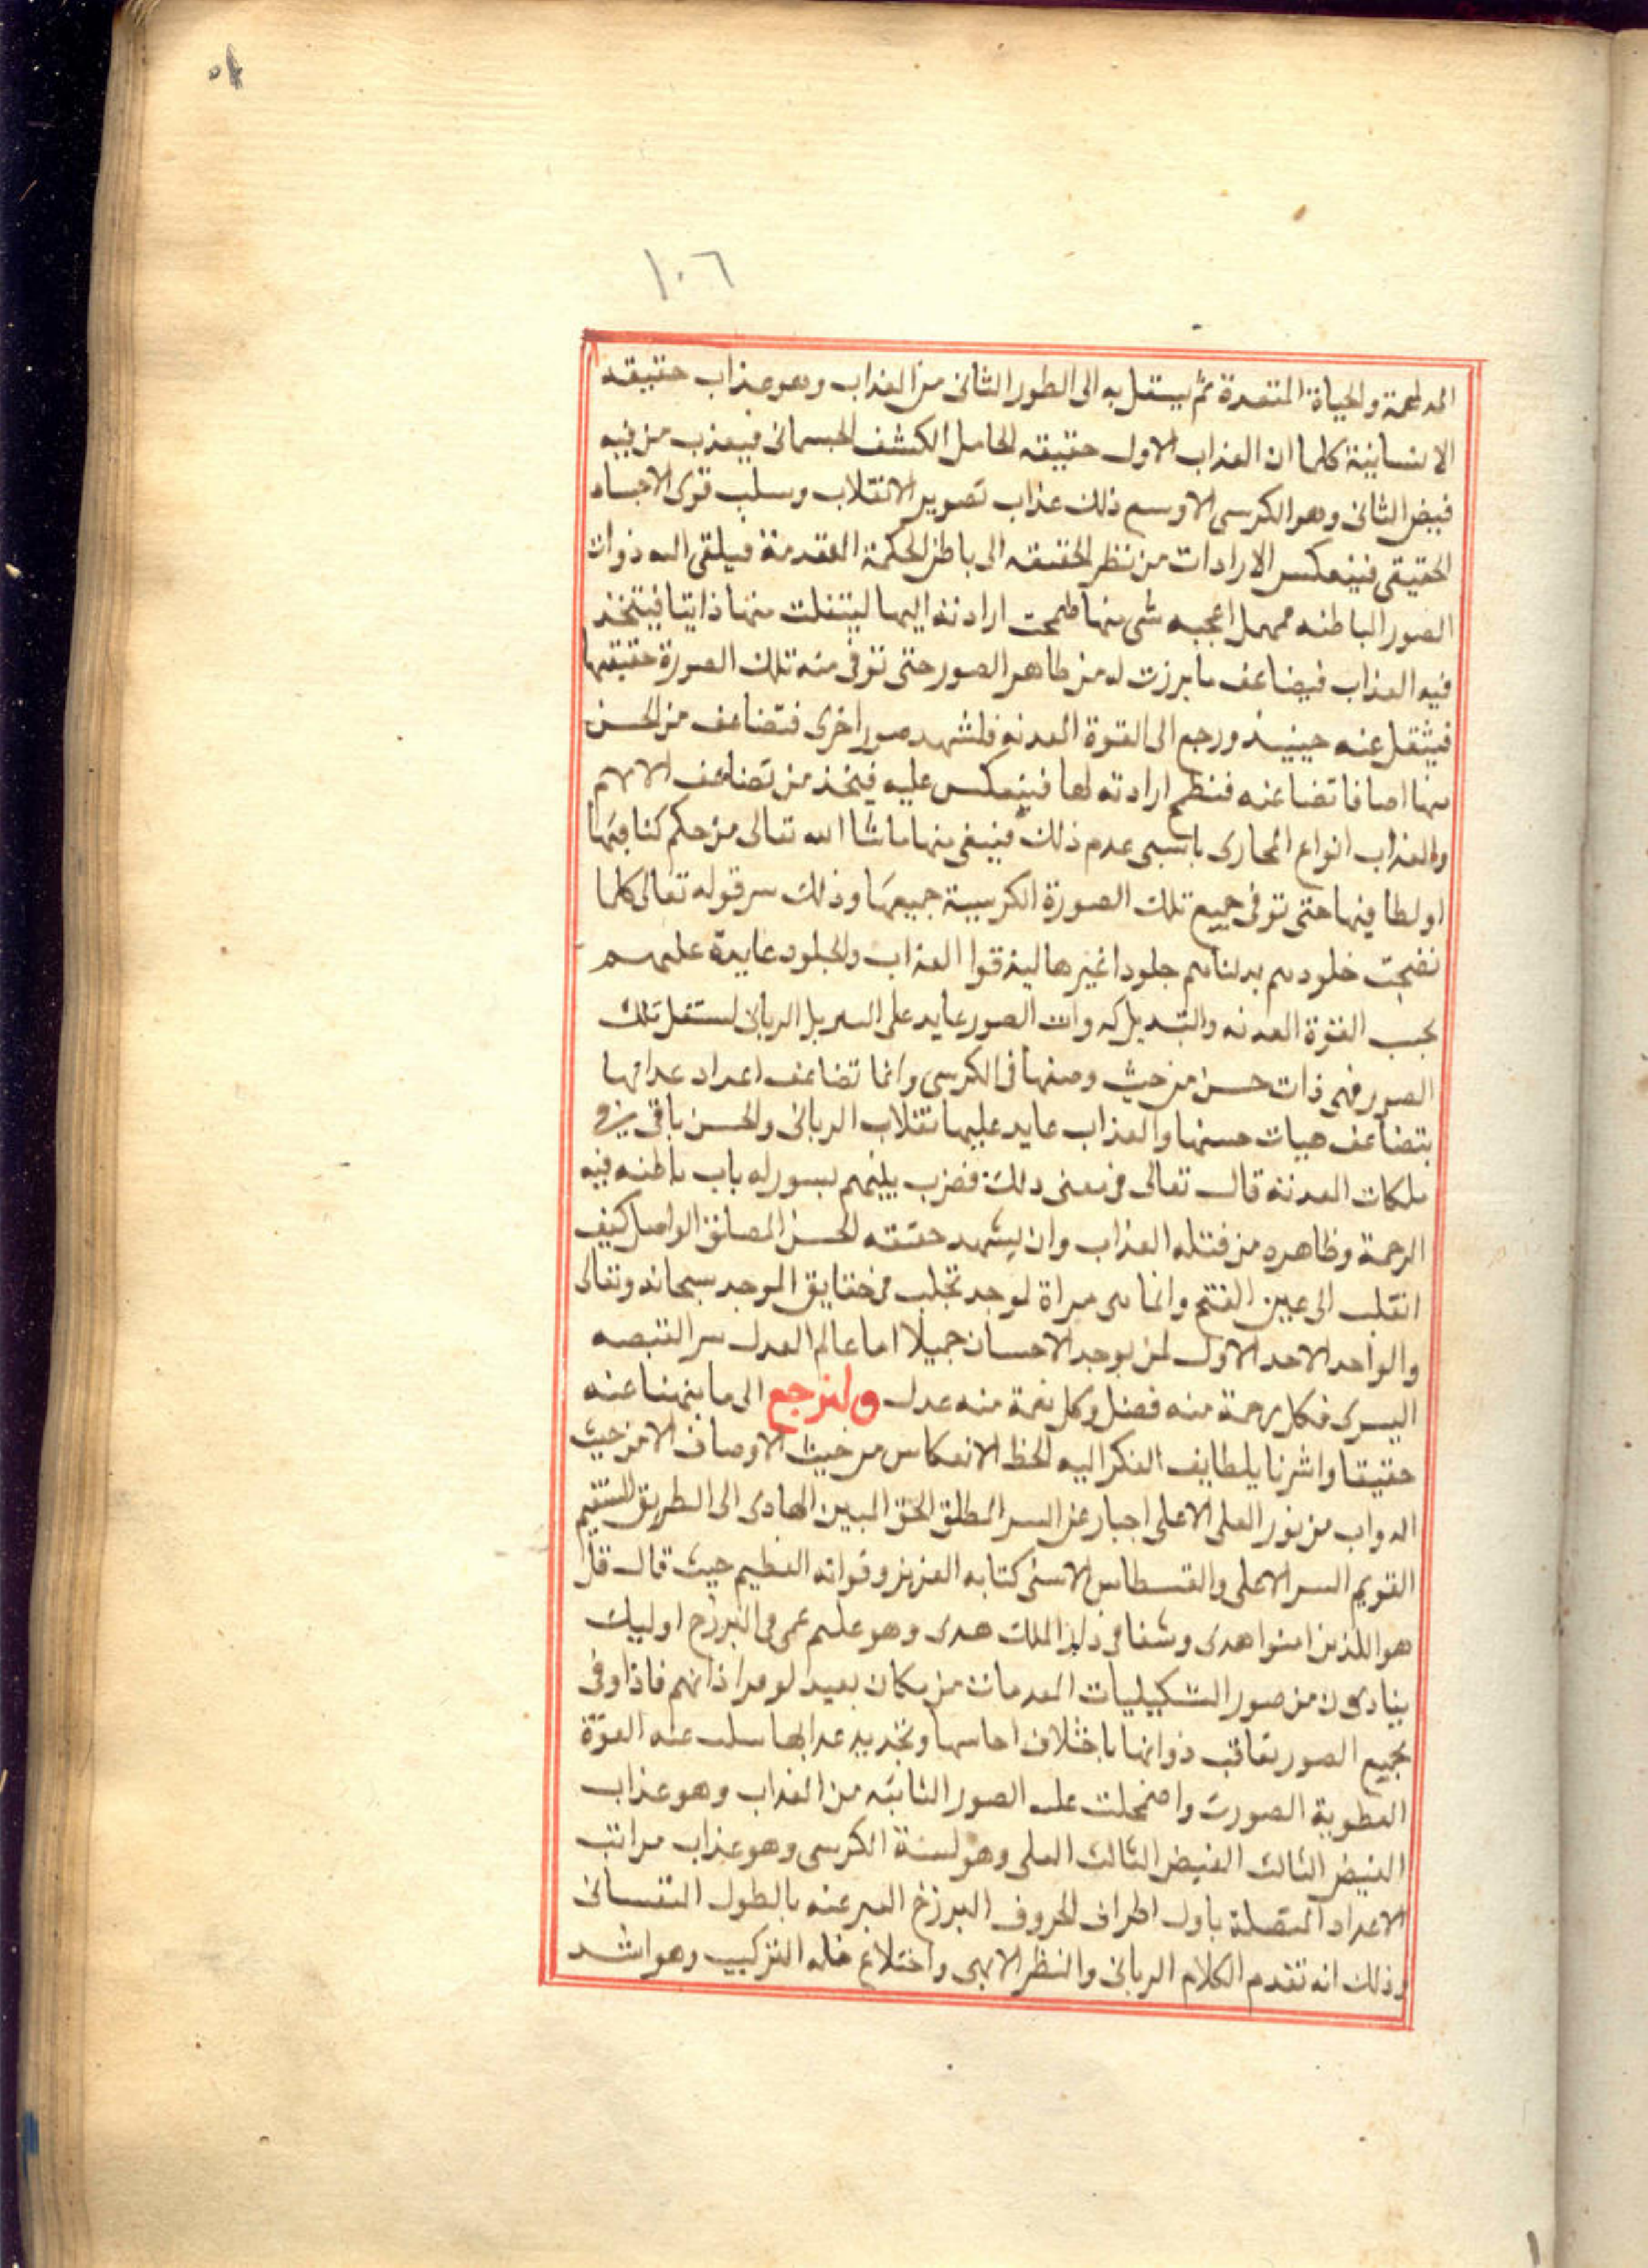 ١٠٦
المدلهمة والحياة المتعددة ثم يستقل به الى الطور الثانى من العذاب وهو عذاب حقيقه
الانسانية كلها ان العذاب الاول حقيقه الحامل الكشف الجسمانى فيعذب من فيه
فيض الثانى وهو الكرسى الاوسع ذلك عذاب تصوير الانقلاب وسلب قوى الاجساد
الحقيقى فينعكس الارادات من نظر الحقيقه الى باطن الحكمة المقدمة فيلقى اليه ذوات
الصور الباطنه فمهما اعجبه شى منها طمحت ارادته اليها ليتفلت منها ذاتيا فيتخذ
فيه العذاب فيضاعف ما برزت له من ظاهر الصور حتى توفى منه تلك الصورة حقيقتها
فيثقل عنه حينيذ ورجع الى القوة العدنه فلشهد صور اخرى فتضاعف من الحسن
منها اصافا تضاعنه فنطمح ارادته لها فينعكس عليه فيتخذ من تضاعف الالام
والعذاب انواع المجارى بانسبى عدم ذلك فينفى منها ما شا الله تعالى من حكم كثافيتها
او لطافيتها حتى توفى جميع تلك الصورة الكرسية جميعها وذلك سر قوله تعالى كلما
نضجت خلودهم بدلناهم جلودا غيرها ليذقوا العذاب والجلود عايدة عليهم
بحب القوة العدنه والتبديل كه وات الصور عايد على السربل الربانى لستقل تلك
الصور فهى ذات حسن من حيث وصفها فى الكرسى وانما تضاعف اعداد عدابها
بتضاعف هيات حسنها والعذاب عايد عليها تقلاب الربانى والحسن باقى يزو
ملكات العدنة قال تعالى فى معنى دلك فضرب بينهم بسور له باب باطنه فيه
الرحمة وظاهره من قتله العذاب وان يشهد حقيقته الحسن المصانق الواصل كيف
انقلب الى عين القتح وانما هى مراة لموجد تجلب من حقايق الموجد سبحانه وتعالى
والواحد الاحد الاول لمن يوجد الاحسان جميلا اما عالم العدل سر القبصه
اليسرى فكل رحمة منه فضل وكل نعمة منه عدل ولنرجع الى ما ينهنا عنه
حقيقا واشرنا يلطايف الفكر اليه لحظ الانعكاس من حيث الاوصاف الا من حيث
الدواب من نور العلى الاعلى اجبار عن السر المطلق الحق المبين الهادى الى الطريق المستقيم
القويم السر الاعلى والقسطاس الاسنى كتابه العزيز وقرانه العظيم حيث قال قل
هو اللذين امنوا هدى وشفا فى ذلك الملك هدى وهو عليهم عمى فى البرزخ اوليك
ينادون من صور التشكيليات المعدمات من مكان بعيد لو مرا ذاتهم فاذا وفى
بجميع الصور تعاقب ذواتها باختلاف اجاسها وتجديد عدابها سلب عنه القوة
العطوية الصورت واضمحلت عليه الصور الثابته من العذاب وهو عذاب
الفيض الثالث الفيض الثالث العلى وهو لسنة الكرسى وهو عذاب مراتب
الاعداد المتصلة باول اطراف الحروف البرزخ العبر عنه بالطول النفسانى
وذلك انه تقدم الكلام الربانى والنظر الالهى واختلاع خله التركيب وهو اشد